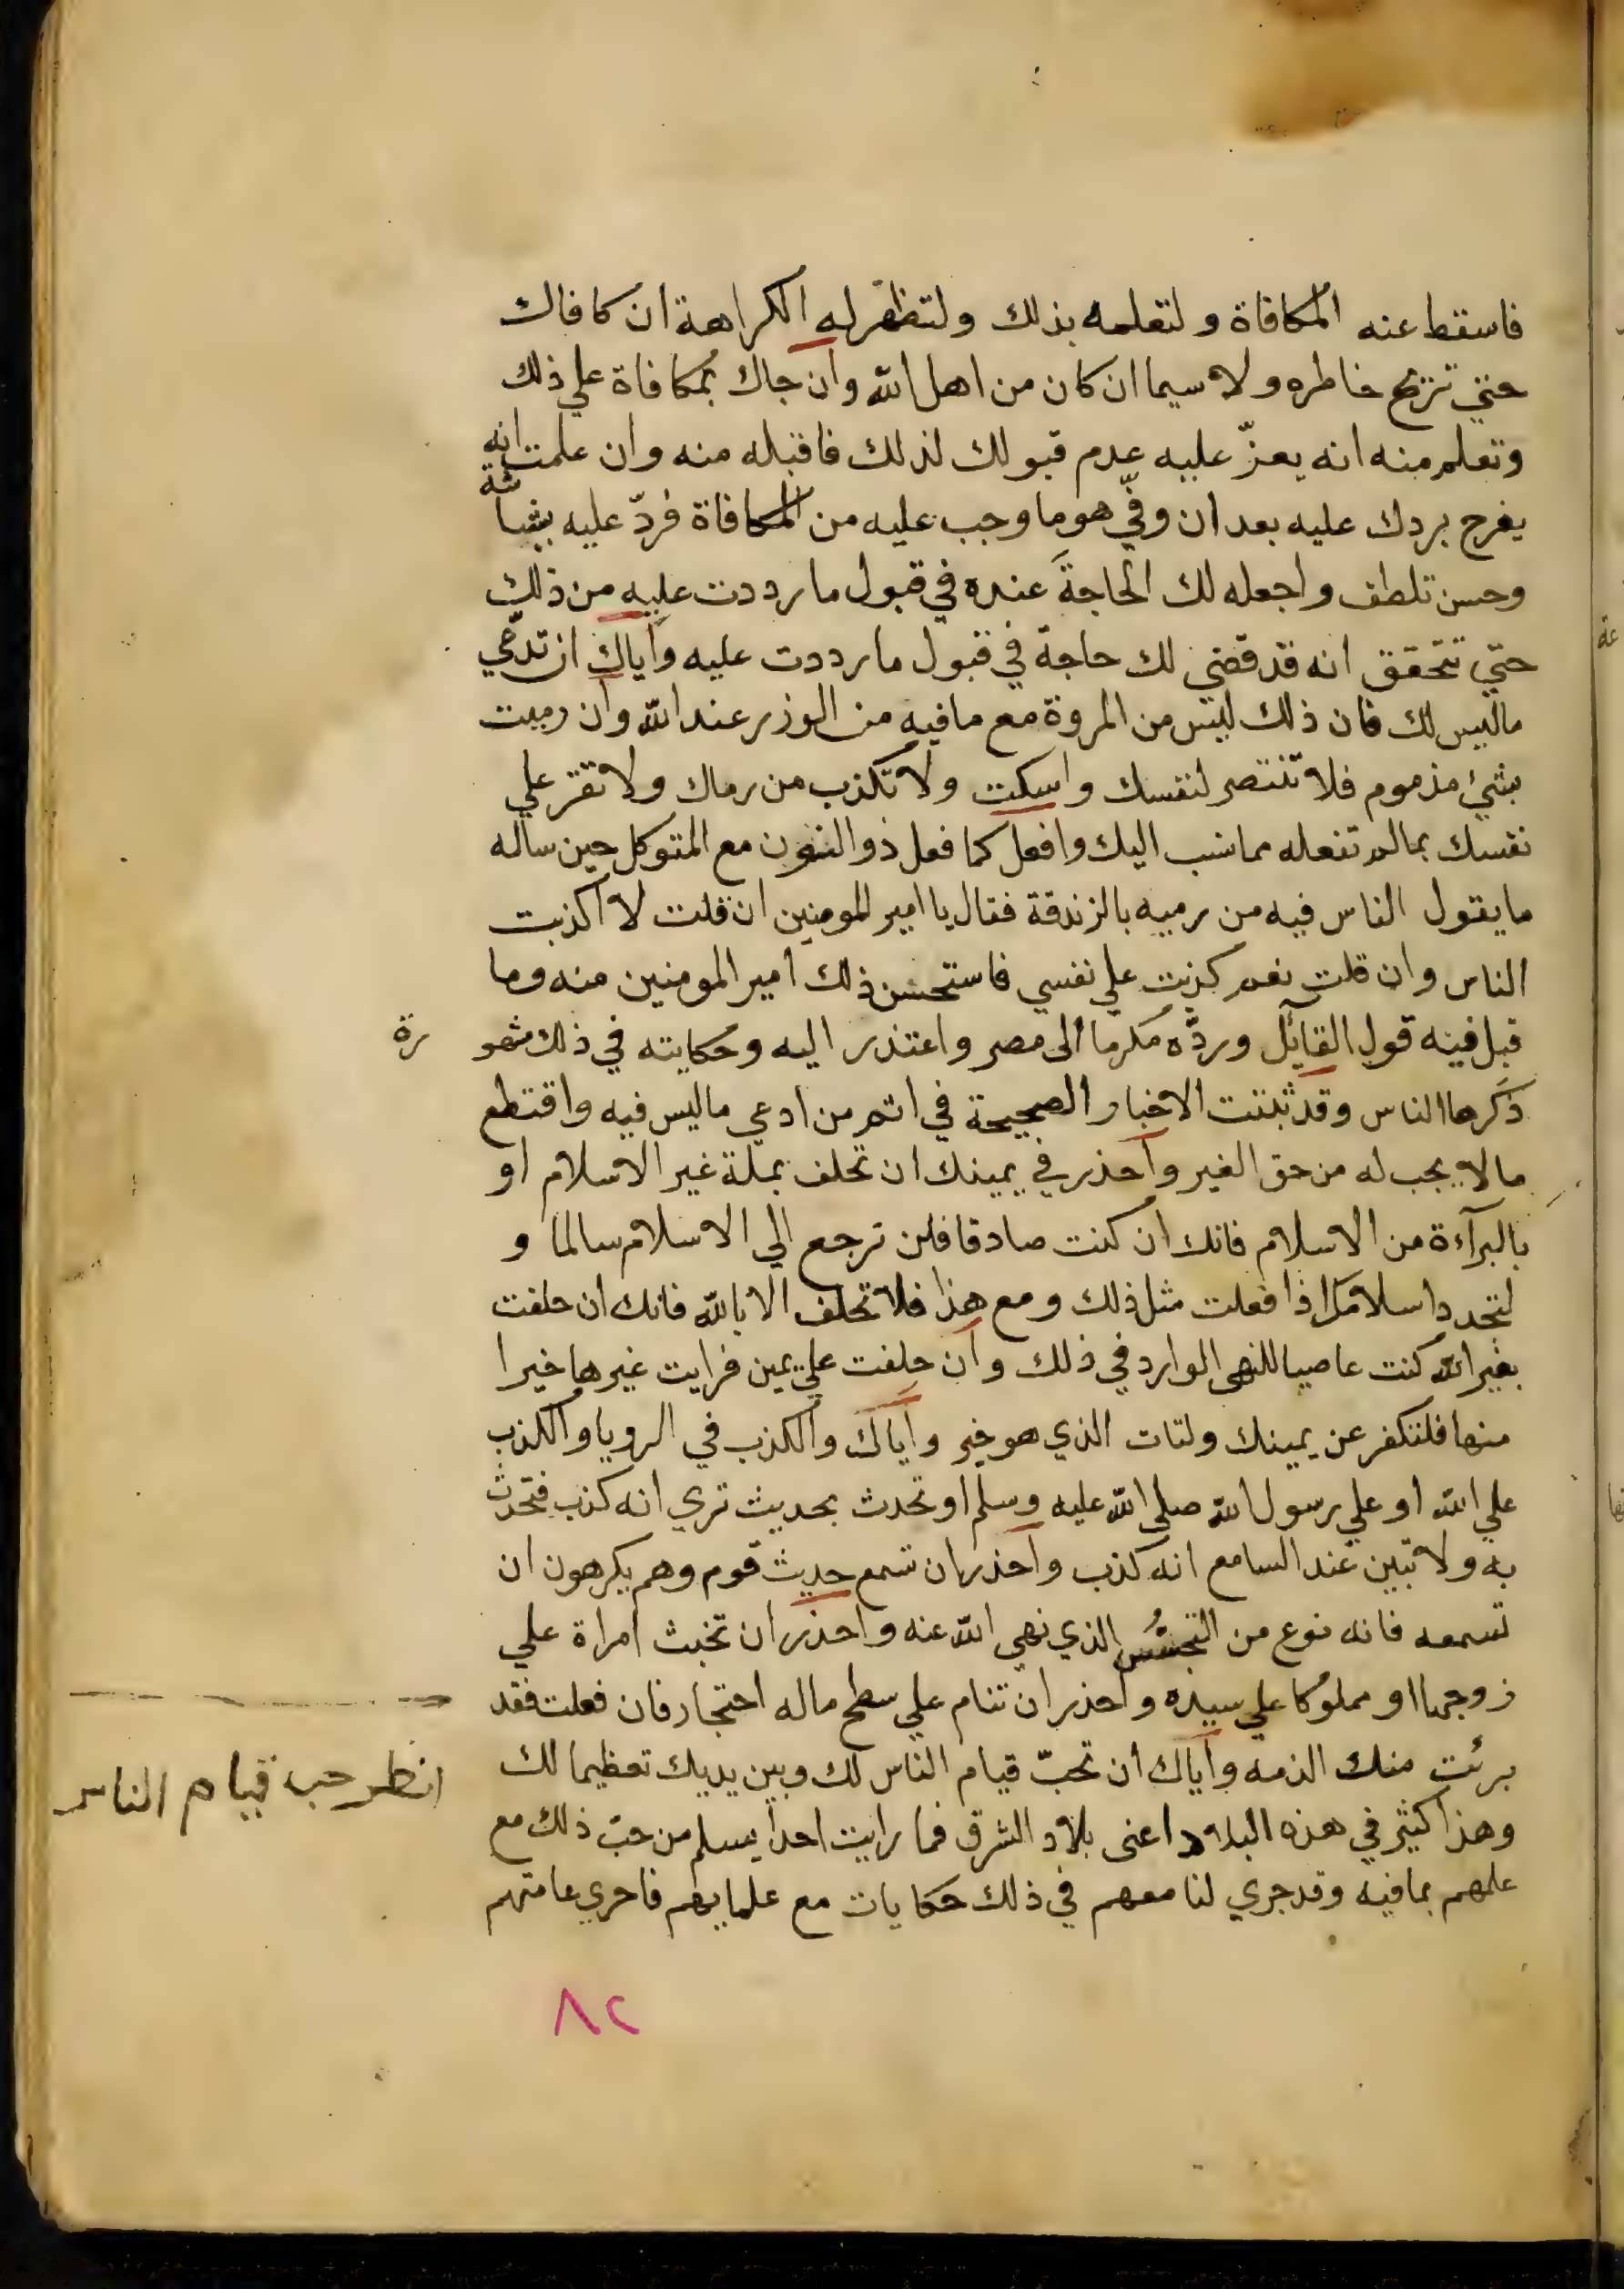 فاسقط عنه المكافاة ولتعلمه بذلك ولتظهر له الكراهة ان كافاك
حتي تريح خاطره ولا سيما ان كان من اهل الله وان جاك بمكافاة علي ذلك
وتعلم منه انه يعزّ عليه عدم قبولك لذلك فاقبله منه وان علمت انه
يفرح بردك عليه بعد ان وفّي هو ما وجب عليه من المكافاة فردّ عليه ببشاشة
وحسن تلطف واجعله لك الحاجةَ عنده في قبول ما رددت عليه من ذلك
حتّي تتحقق انه قد قضي لك حاجة في قبول ما رددت عليه واياك ان تدّعي
ماليس لك فان ذلك ليس من المروة مع ما فيه من الوزر عند الله وان رميت
بشيء مذموم فلا تنتصر لنفسك واسكت ولا تكذب من رماك ولا تقر علي
نفسك بمالم تفعله مما نسب اليك وافعل كما فعل ذو النون مع المتوكل حين ساله
ما يقول الناس فيه من رميه بالزندقة فقال يا امير المومنين ان قلت لا اكذبت
الناس وان قلت نعم كذبت علي نفسي فاستحسن ذلك امير المومنين منه وما
قبل فيه قول القايل وردّه مكرما الى مصر واعتذر اليه وحكايته في ذلك مشهورة
ذكرها الناس وقد ثبتت الاخبار الصحيحة في اثم من ادعي ماليس فيه واقتطع
مالا يجب له من حق الغير واحذر في يمينك ان تحلف بملة غير الاسلام او
بالبرآءة من الاسلام فانك ان كنت صادقا فلن ترجع الي الاسلام سالما و
لتجدد اسلامك اذا فعلت مثل ذلك ومع هذا فلا تحلف الا بالله فانك ان حلفت
بغير الله كنت عاصيا للنهى الوارد في ذلك وان حلفت علي يمين فرايت غيرها خيرا
منها فلتكفر عن يمينك ولتات الذي هو خير واياك والكذب في الرويا والكذب
علي الله او علي رسول الله صلى الله عليه وسلم او تحدث بحديث تري انه كذب فتحدث
به ولا تبين عند السامع انه كذب واحذر ان تسمع حديث قوم وهم يكرهون ان
تسمعه فانه نوع من التجسُس الذي نهي الله عنه واحذر ان تخبث امراة علي
زوجها او مملوكا علي سيده واحذر ان تنام علي سطح ماله احتجار فان فعلت فقد
برئت منك الذمه واياك ان تحبّ قيام الناس لك وبين يديك تعظيما لك
انظر حب قيام الناس
وهذا كثير في هذه البلاد اعنى بلاد الشرق فما رايت احدا يسلم من حبّ ذلك مع
علمهم بما فيه وقد جري لنا معهم في ذلك حكايات مع علمايهم فاحري عامتهم
٨٢